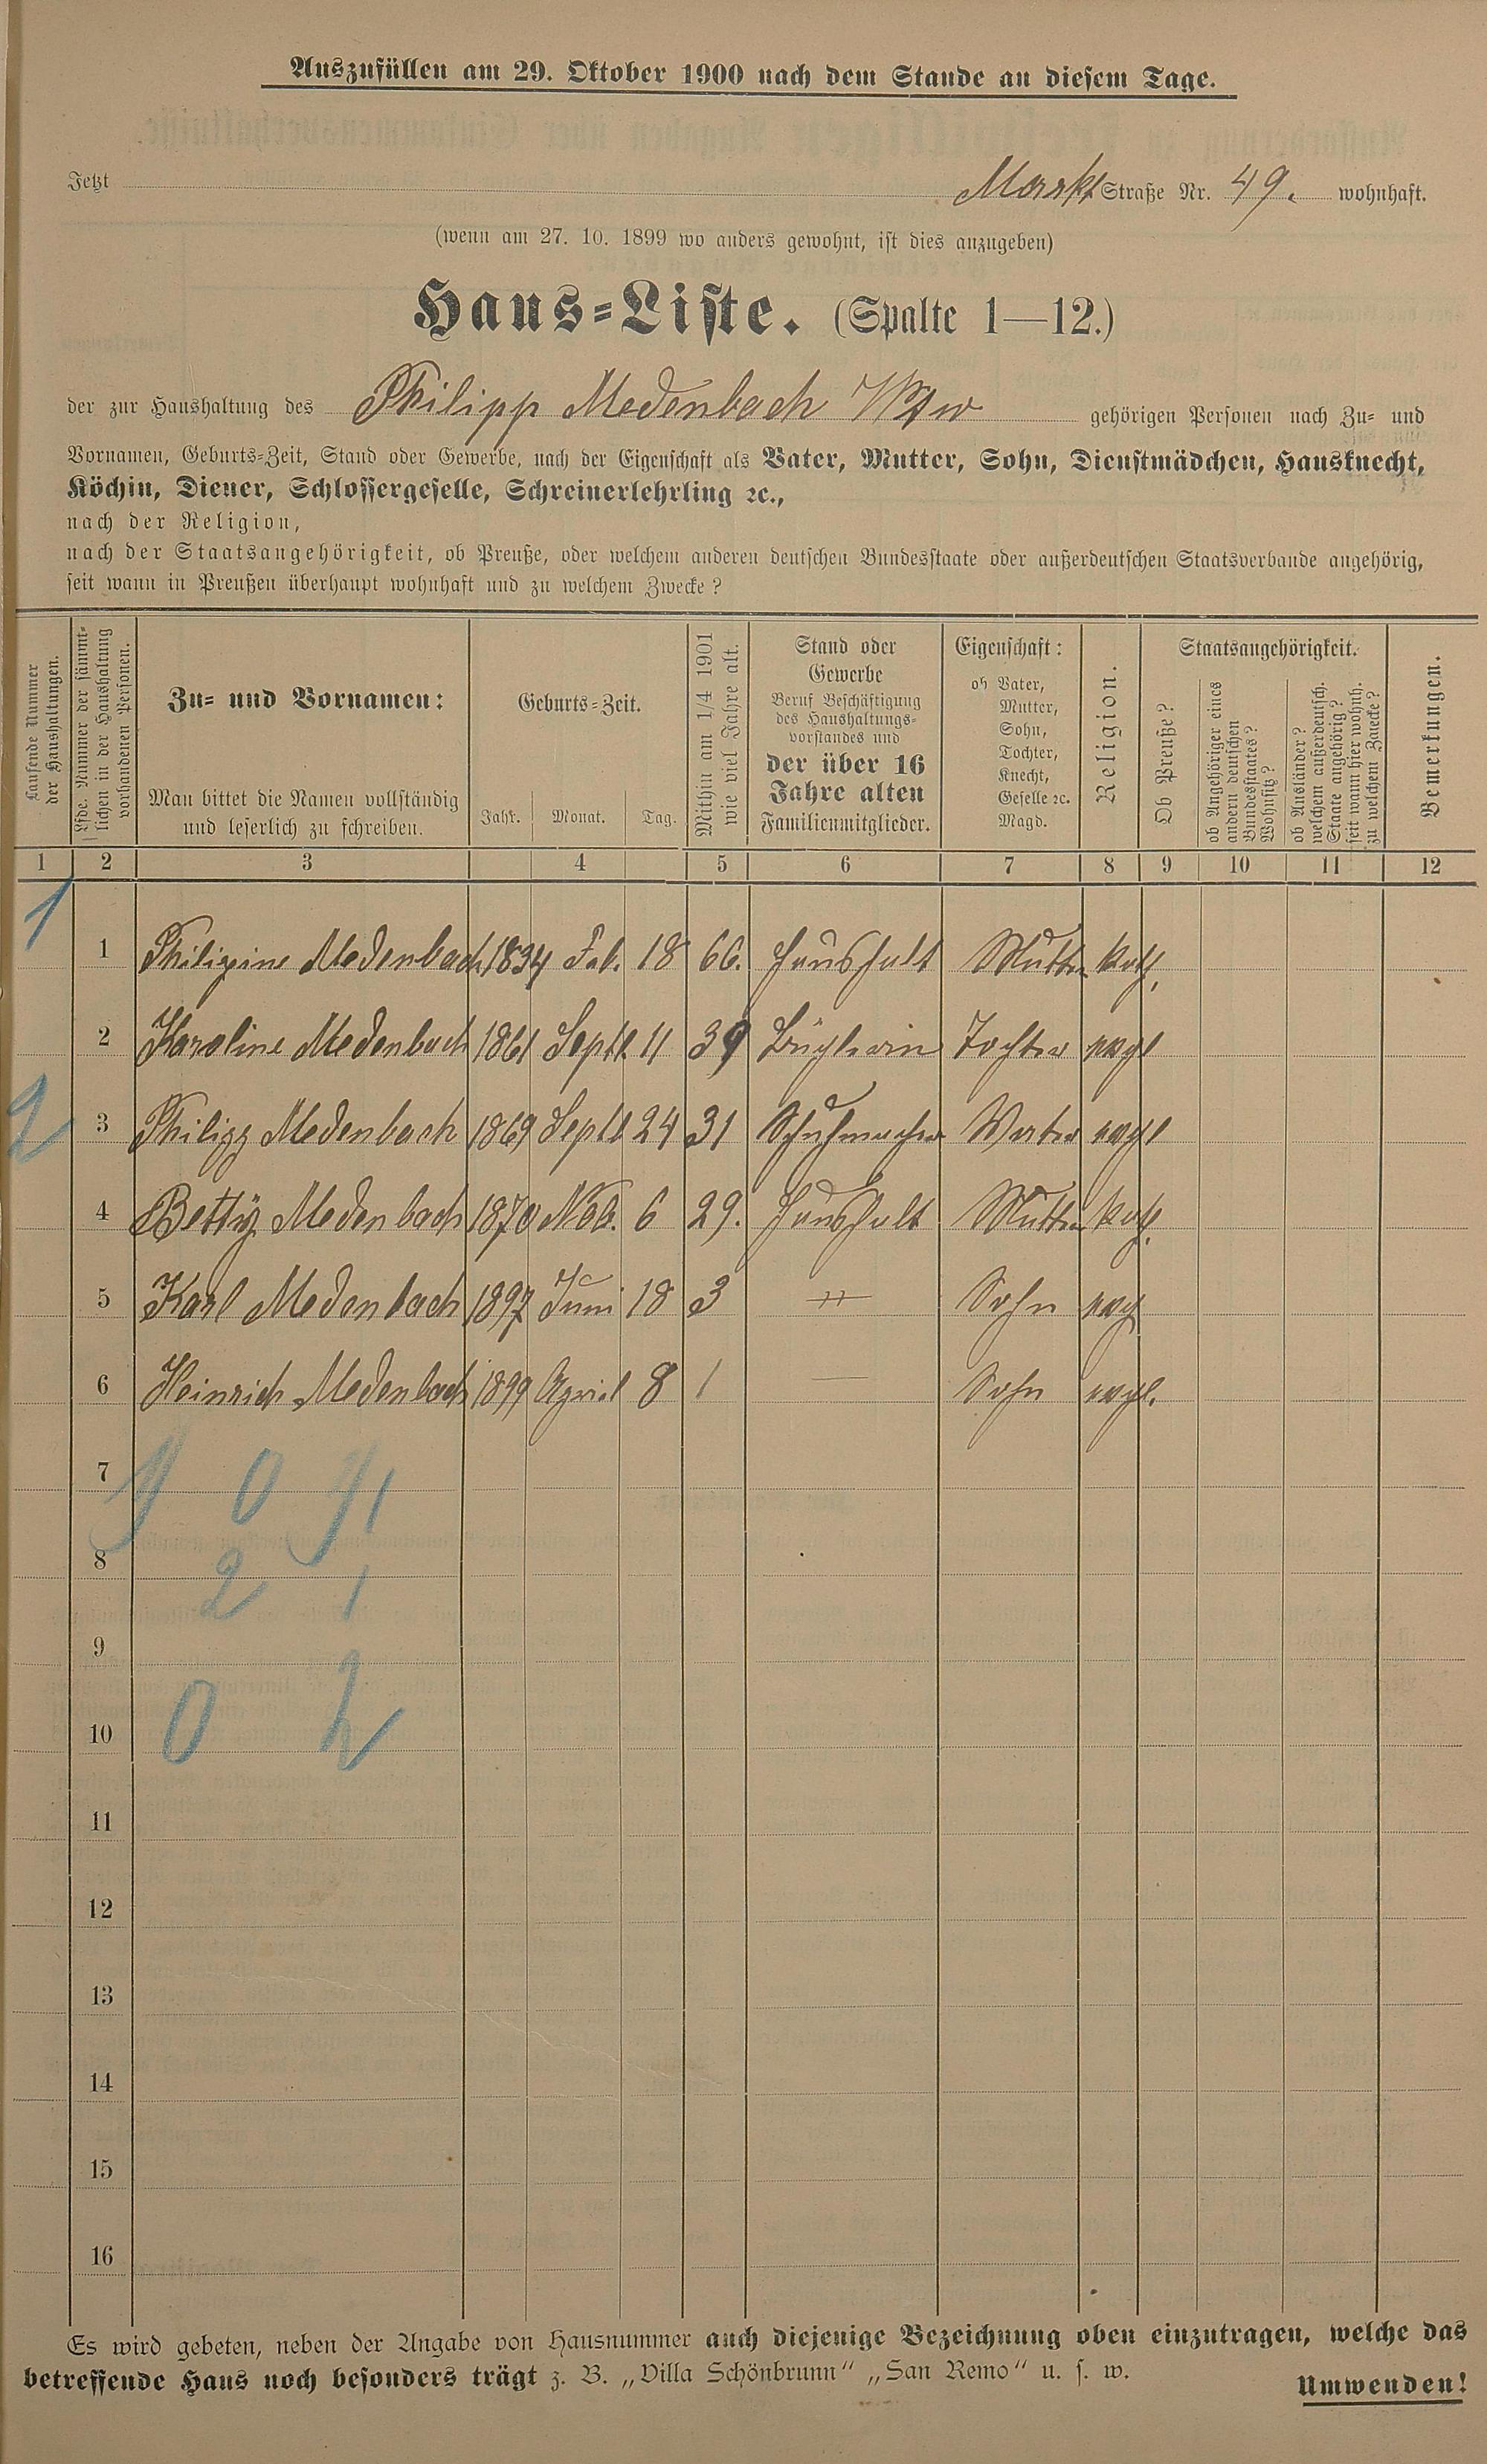 Auszufüllen am 29. Oktober 1900 nach dem Stande an diesem Tage.
Jetzt Markt Straße Nr. 49. wohnhaft.
(wenn am 27. 10. 1899 wo anders gewohnt, ist dies anzugeben)
Haus-Liste. (Spalte 1—12.)
der zur Haushaltung des Philipp Medenbach Wtw gehörigen Personen nach Zu- und
Vornamen, Geburts-Zeit, Stand oder Gewerbe, nach der Eigenschaft als Vater, Mutter, Sohn, Dienstmädchen, Hausknecht,
Köchin, Diener, Schlossergeselle, Schreinerlehrling ꝛc.,
nach der Religion,
nach der Staatsangehörigkeit, ob Preuße, oder welchem anderen deutschen Bundesstaate oder außerdeutschen Staatsverbande angehörig,
seit wann in Preußen überhaupt wohnhaft und zu welchem Zwecke?
Laufende Nummer der Haushaltungen.
Lfde. Nummer der sämmtlichen in der Haushaltung vorhandenen Personen.
Zu- und Vornamen:
Man bittet die Namen vollständig
und leserlich zu schreiben.
Geburts-Zeit.
Jahr. Monat. Tag.
Mithin am 1/4 1901
wie viel Jahre alt.
Stand oder
Gewerbe
Beruf Beschäftigung
des Haushaltungs-
vorstandes und
der über 16
Jahre alten
Familienmitglieder.
Eigenschaft:
ob Vater,
Mutter,
Sohn,
Tochter,
Knecht,
Geselle ꝛc.
Magd.
Religion.
Staatsangehörigkeit.
Ob Preuße?
ob Angehöriger eines
andern deutschen
Bundesstaates?
Wohnsitz?
ob Ausländer?
welchem außerdeutsch.
Staate angehörig?
seit wann hier wohnh.
zu welchem Zwecke?
Bemerkungen.
1 2 3 4 5 6 7 8 9 10 11 12
1 1 Philippine Medenbach 1834 Feb. 18 66. Haushalt Mutter kath.
2 Karoline Medenbach 1861 Septb. 11 39 Büglerin Tochter evgl
2 3 Philipp Medenbach 1869 Septb 24 31 Schuhmacher Vater evgl
4 Betty Medenbach 1870 Nov. 6 29. Haushalt Mutter kath.
5 Karl Medenbach 1897 Juni 18 3 — Sohn evg
6 Heinrich Medenbach 1899 April 8 1 — Sohn evgl.
7
8
2 1
9
10
0 2
11
12
13
14
15
16
Es wird gebeten, neben der Angabe von Hausnummer auch diejenige Bezeichnung oben einzutragen, welche das
betreffende Haus noch besonders trägt z. B. „Villa Schönbrunn“ „San Remo“ u. s. w.
Umwenden!